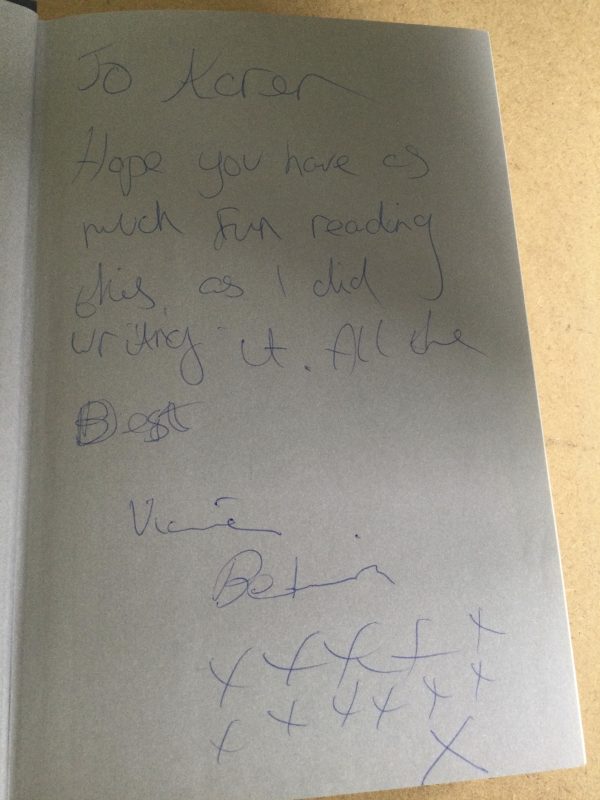 To Karen
Hope you have as
much fun reading
this, as I did
writing it. All the
Best
x x x x x
x x x x x x
x